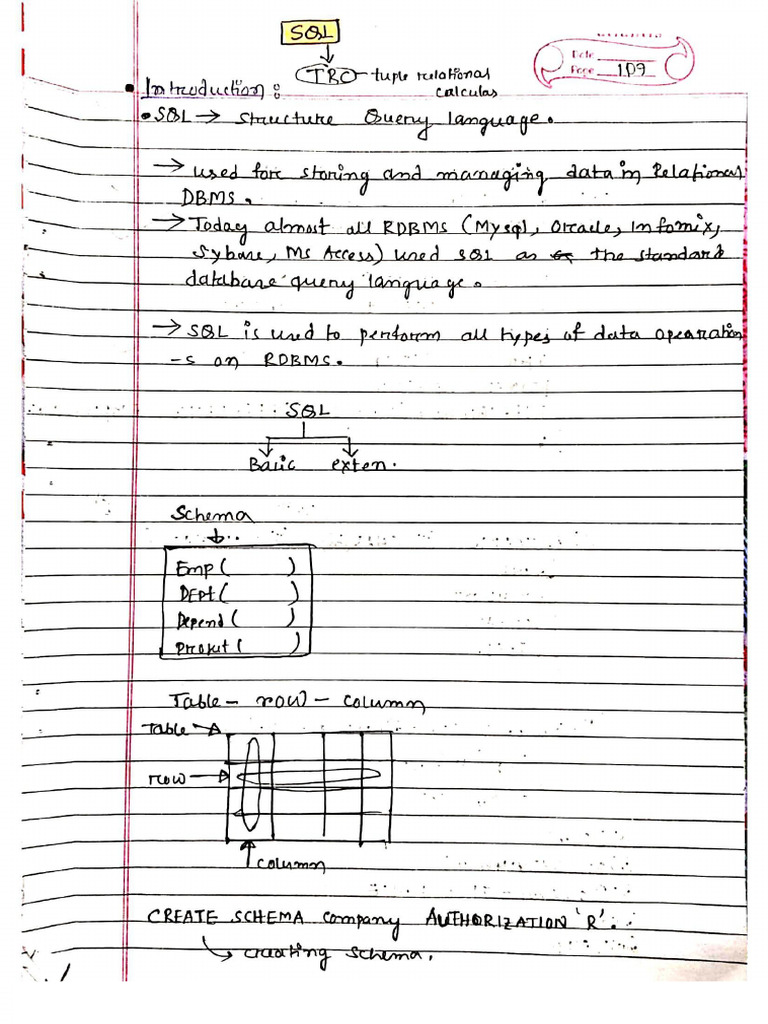 SQL
TRC - tuple relational
calculas
Date
Page 109
• Introduction :
• SQL → Structure Query language.
→ used for storing and managing data in Relational
DBMS.
→ Today almost all RDBMS (Mysql, Oracle, Infomix,
Sybase, Ms Access) used SQL as the standard
database query language.
→ SQL is used to perform all types of data opearation
-s on RDBMS.
SQL
Basic exten.
Schema
Emp ( )
DEPt ( )
Depend ( )
Project ( )
Table - row - column
Table →
row →
column
CREATE SCHEMA Company AUTHORIZATION 'R'.
creating schema.